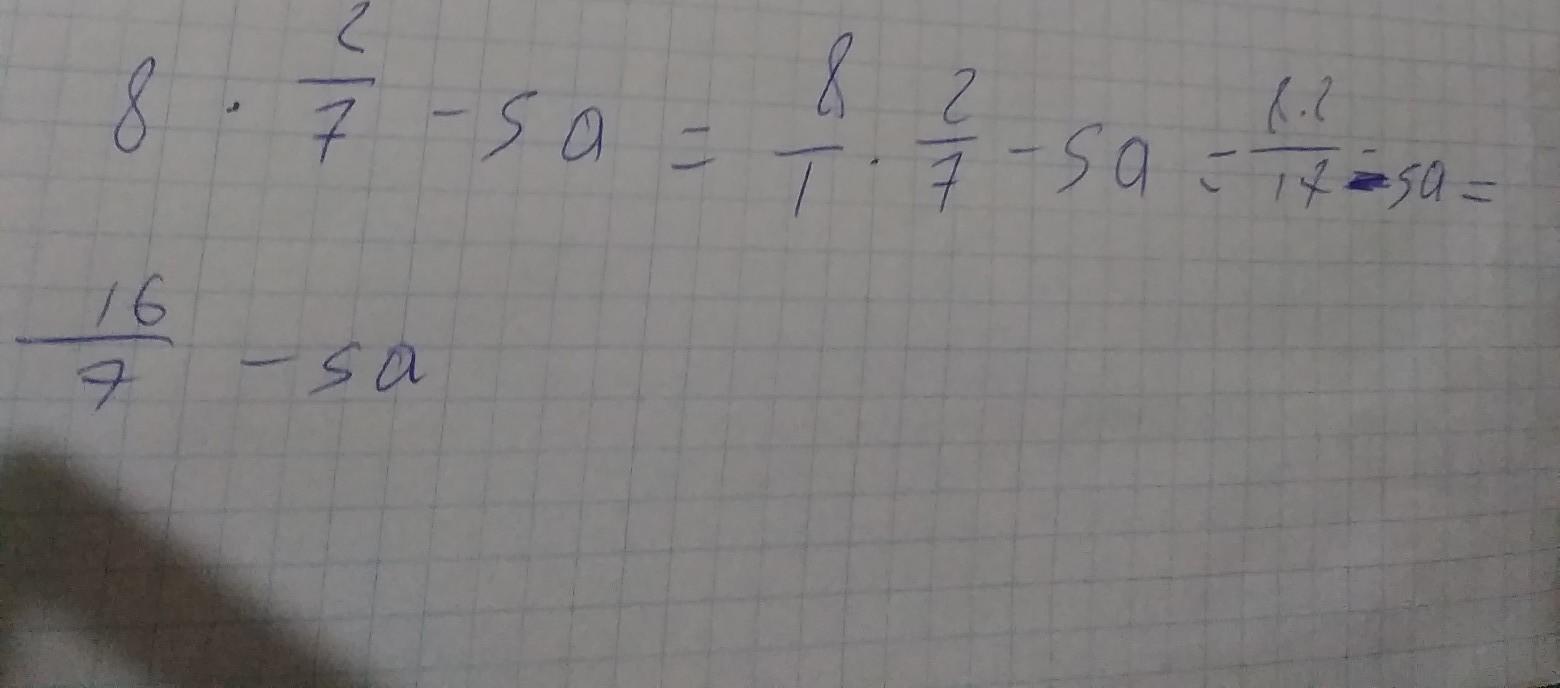 8 · 2/7 - 5a = 8/1 · 2/7 - 5a = 8·2/1·7 - 5a =
16/7 - 5a